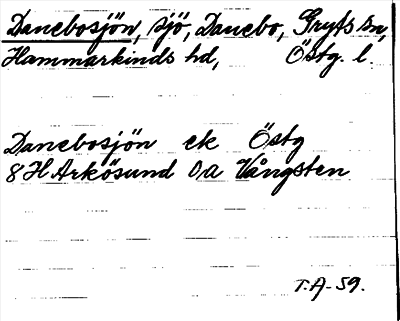 Danebosjön, sjö, Danebo, Gryts sn,
Hammarkinds hd, Östg. l.
Danebosjön ek Östg
8H Arkösund 0a Vångsten
T.A-59.